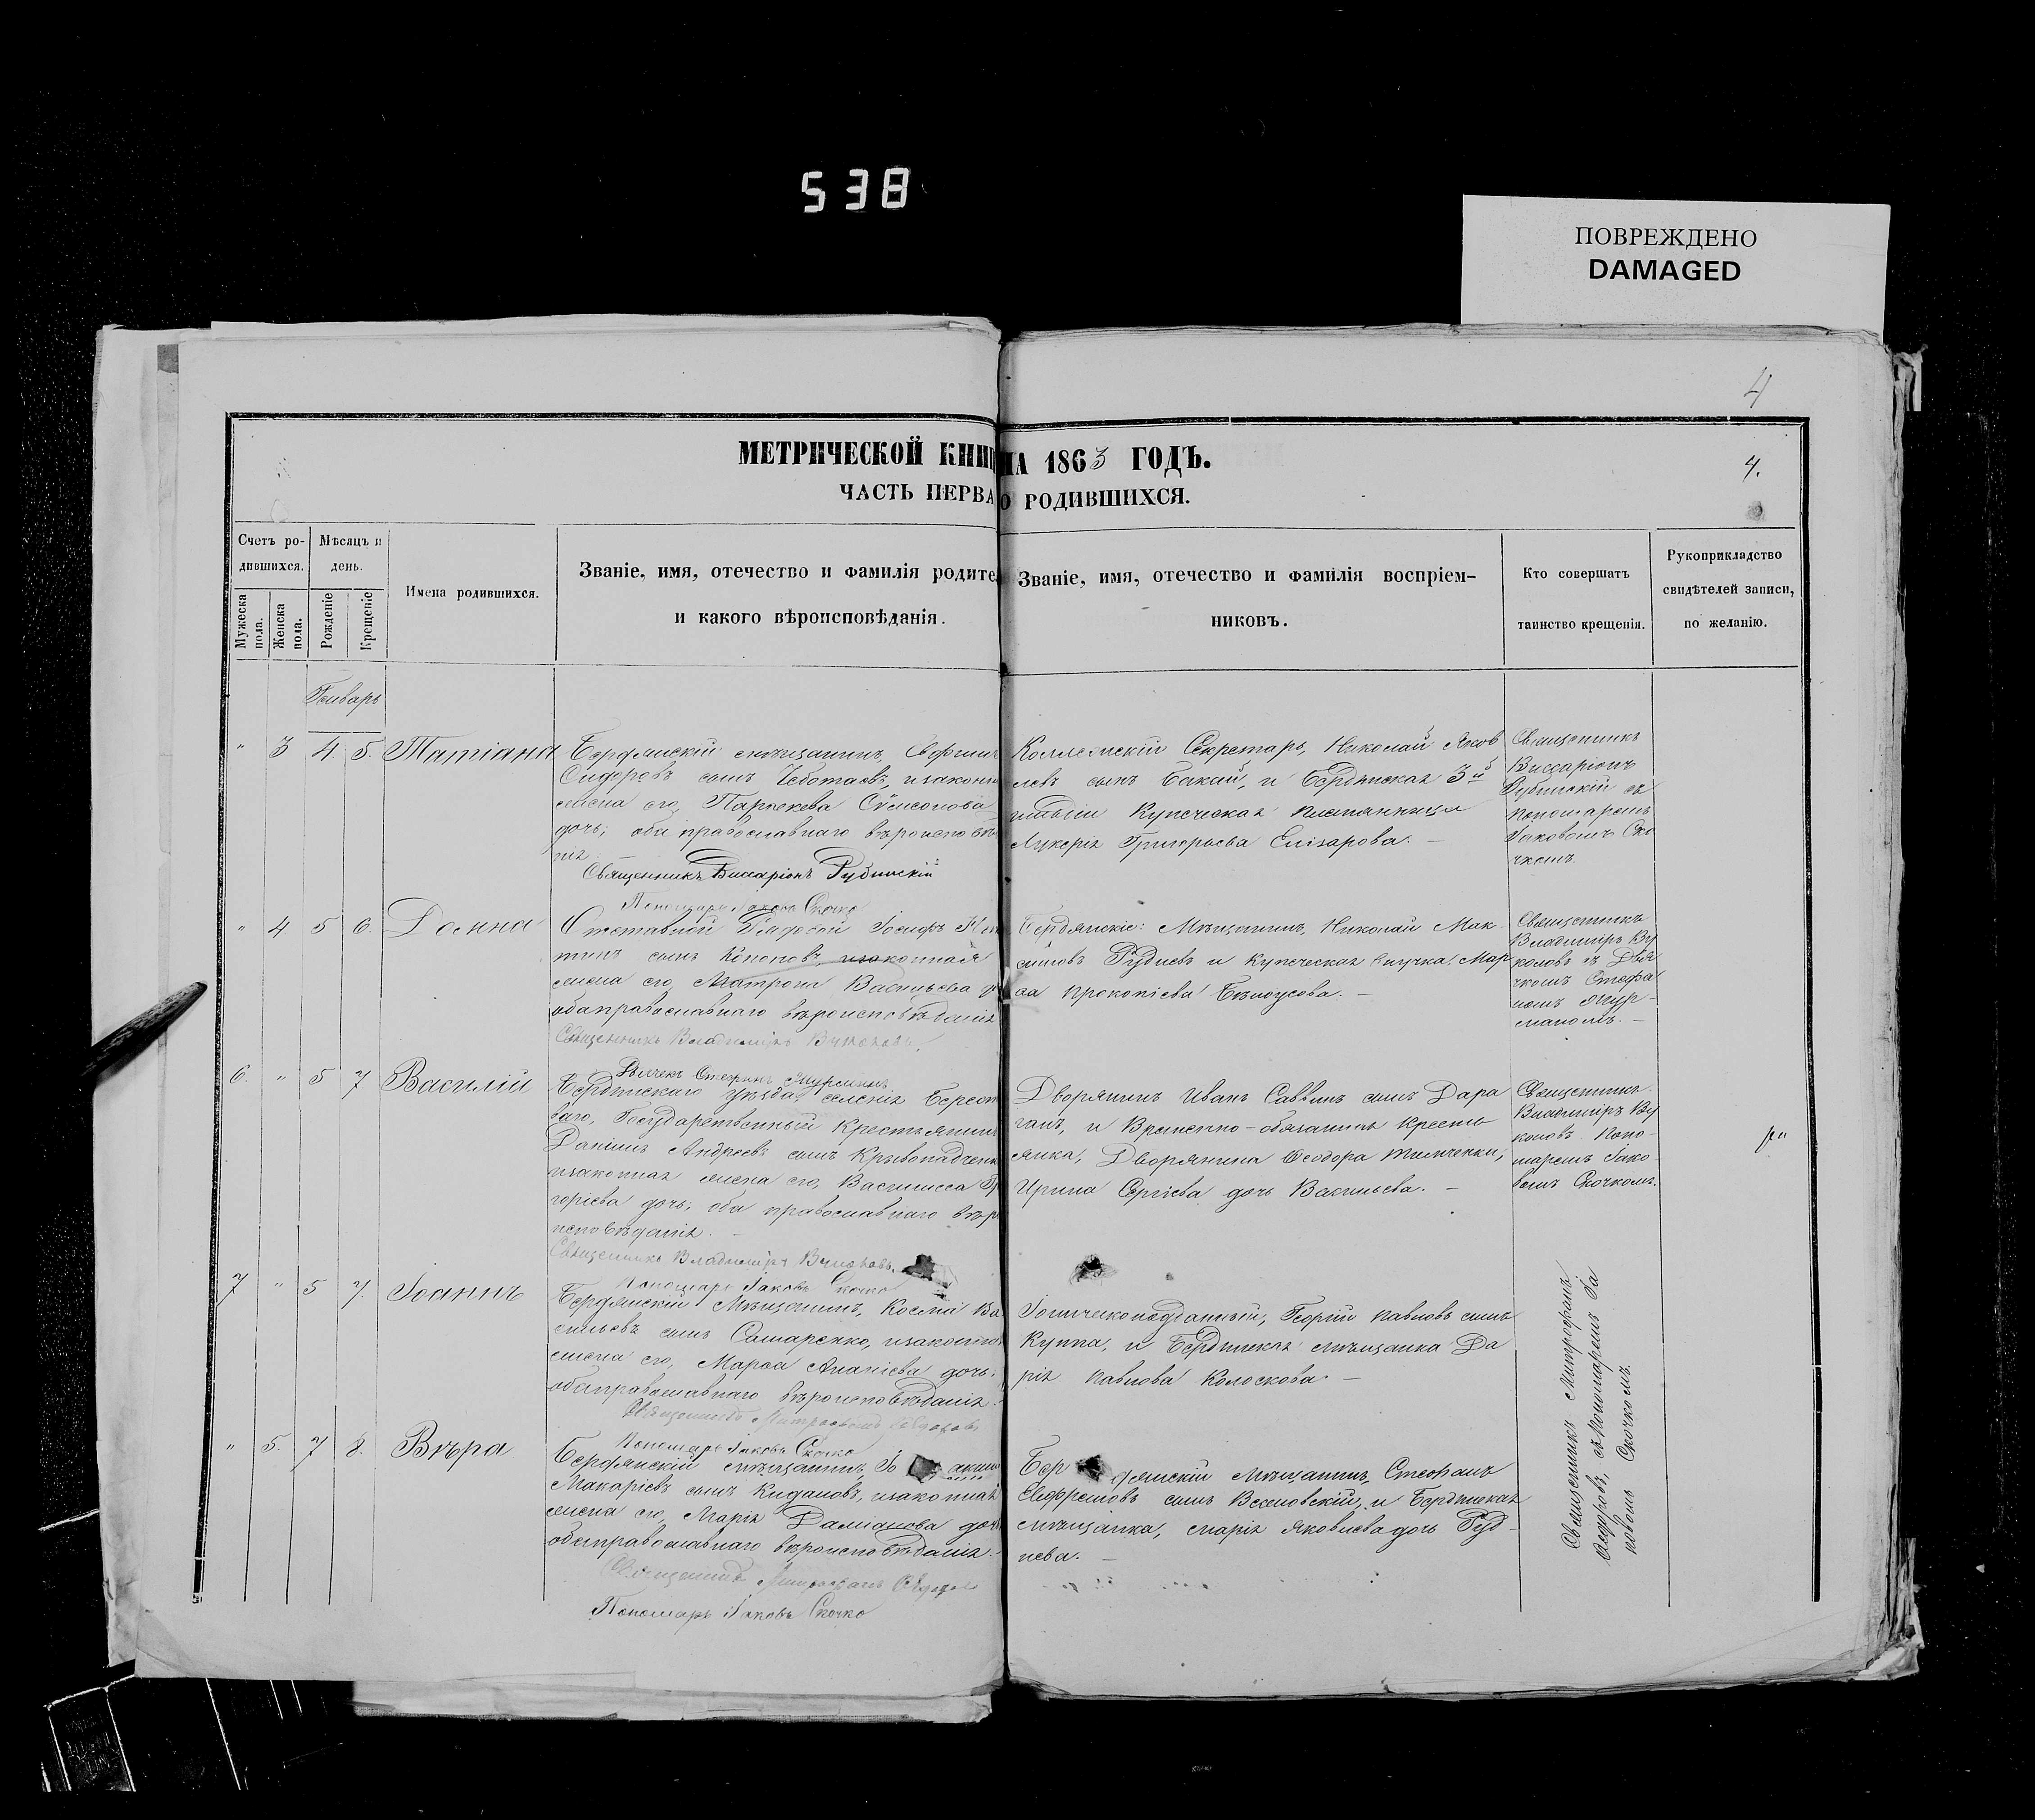 538
ПОВРЕЖДЕНО
DAMAGED
4
МЕТРИЧЕСКОЙ КНИГ
НА 1863 ГОДЪ.
4.
ЧАСТЬ ПЕРВА
О РОДИВШИХСЯ.
Счетъ ро-
дившихся.
Мужеска пола.
Женска пола.
Мѣсяцъ и
день.
Рожденіе
Крещеніе
Имена родившихся.
Званіе, имя, отечество и фамилія родите
и какого вѣроисповѣданія.
Званіе, имя, отечество и фамилія воспріем-
никовъ.
Кто совершатъ
таинство крещенія.
Рукоприкладство
свидѣтелей записи,
по желанію.
Генварь
" 3 4 5. Татіана
Бердянскій мѣщанинъ,
Сидоровъ сынъ Чеботаевъ, и законн
жена его, Параскева
дочь; оба православнаго вѣроисповѣ
нія. —
Священникъ Виссаріонъ Рубинскій
Пономарь Іаковъ Скочко
Коллежскій Секретарь, Николай Яков
левъ сынъ Бакай, и Бердянская 3й
гильдіи Купеческая племянница
Гликерія Григорьева Елизарова. —
Священникъ
Виссаріонъ
Рубинскій съ
пономаремъ
Іаковомъ Ско
чкомъ.
" 4 5 6. Домна
Отставной Рядовой Іосифъ
тинъ сынъ Кононовъ, и законная
жена его, Матрона Васильева
оба православнаго вѣроисповѣданія
Священникъ Владиміръ Вуколовъ.
Дьячекъ Стефанъ
Бердянскіе: Мѣщанинъ, Николай Мак-
симовъ Рудневъ и купеческая внучка, Мар
ѳа Прокопіева Бѣлоусова. —
Священникъ
Владиміръ Ву
коловъ съ Дья
чкомъ Стефа
номъ
6. " 5 7 Василій
Бердянскаго уѣзда, селенія Берест
ваго, Государственный Крестьянин
Даніилъ Андреевъ сынъ
и законная жена его, Василисса Гр
горіева дочь; оба православнаго вѣр
исповѣданія. —
Священникъ Владиміръ Вуколовъ.
Пономарь Іаковъ Скочко
Дворянинъ Иванъ Саввинъ сынъ Дара
ганъ, и Временно-обязанная кресть
янка, Дворянина Ѳеодора Тимченки,
Ирина Сергіева дочь Васильева. —
Священникъ
Владиміръ Ву
коловъ Поно-
маремъ Іако-
вомъ Скочкомъ.
7 " 5 7. Іоаннъ
Бердянскій Мѣщанинъ, Косма Ва
сильевъ сынъ Самаренко, и законна
жена его, Марѳа Ананіева дочь.
оба православнаго вѣроисповѣданія.
Священникъ Митрофанъ
Пономарь Іаковъ Скочко
Іоническоподданный, Георгій Павловъ сынъ
Куппа, и Бердянская мѣщанка Да
рія Павлова Колоскова. —
Священникъ Митрофанъ
съ Пономаремъ Іа
ковомъ Скочкомъ.
" 5. 7 8. Вѣра
Бердянскій мѣщанинъ, Іо акимъ
Макаріевъ сынъ Кидановъ, и законная
жена его, Марія Даміанова доч
оба православнаго вѣроисповѣданія.
Священникъ Митрофанъ
Пономарь Іаковъ Скочко
Бер дянскій Мѣщанинъ, Стефанъ
Евфремовъ сынъ и Бердянская
мѣщанка, Марія Яковлева дочь Руд-
нева. —